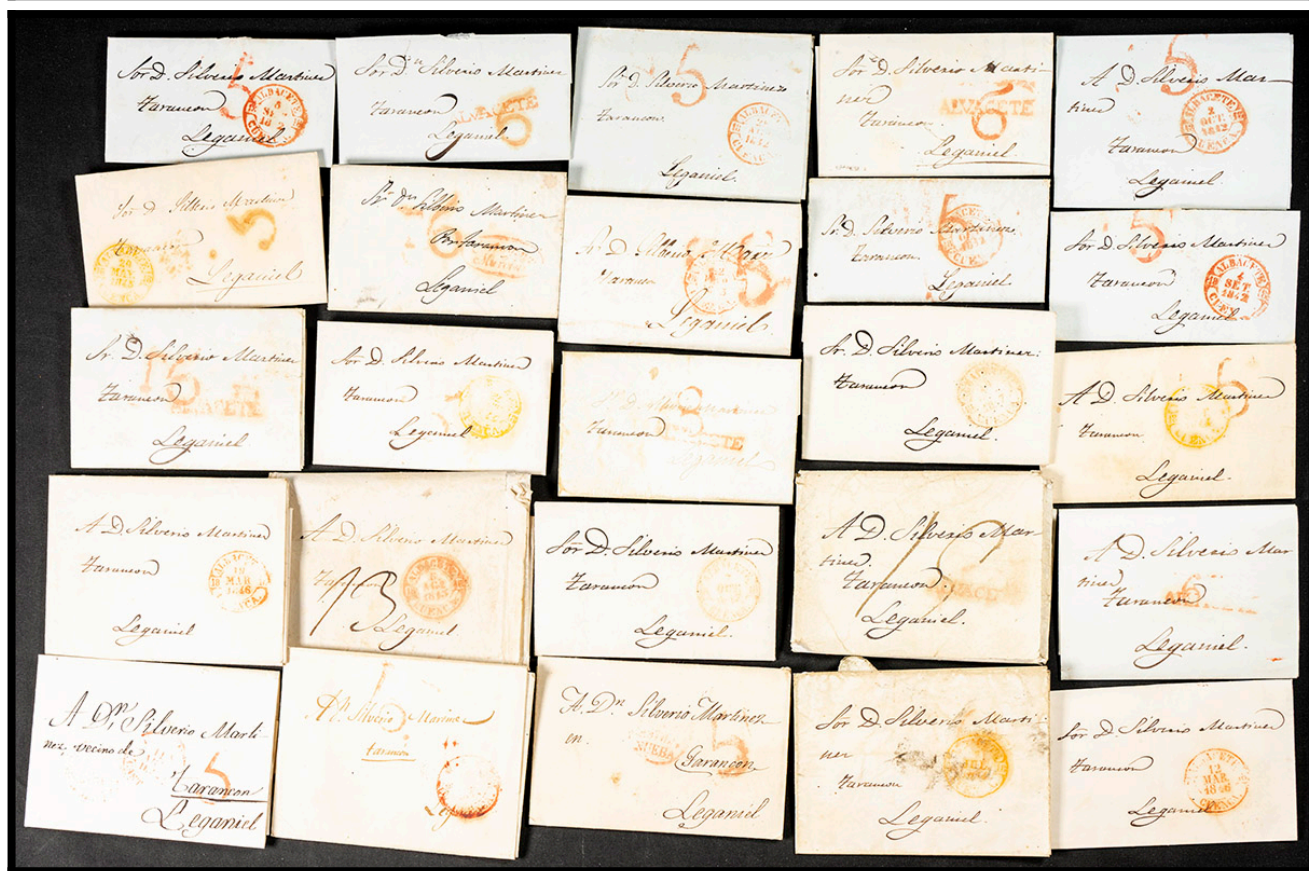 Sor D. Silverio Martinez
Tarancon
Leganiel
5
ALBACETE
CUENCA
Sor Dn Silverio Martinez
Tarancon
Leganiel.
ALVACETE
6
Sr. D. Silverio Martinez
Tarancon.
Leganiel.
5
1842
CUENCA
Sor D. Silverio Marti-
nez
Tarancon.
Leganiel.
ALVACETE
6
A D. Silverio Mar-
tinez
Tarancon
Leganiel.
5
ALBACETE
2
OCT
1842
CUENCA
Sor D. Silverio Martinez
Tarancon
Leganiel
5
Sr. Dn Silverio Martinez
Por Tarancon
Leganiel
Tarancon
Leganiel.
Sr. D. Silverio Martinez
Tarancon.
Leganiel.
5
CUENCA
Sor D. Silverio Martinez
Tarancon
Leganiel
5
ALBACETE
4
SET
1842
CUENCA
Sr. D. Silverio Martinez
Tarancon
Leganiel
ALVACETE
Sor D. Silverio Martinez
Tarancon
Leganiel
Tarancon
Leganiel
Sr. D. Silverio Martinez.
Tarancon
Leganiel.
A D. Silverio Martinez
Tarancon.
Leganiel.
CUENCA
A D. Silverio Martinez
Tarancon
Leganiel
ALBACETE
19
MAR
1846
CUENCA.
A D. Silverio Martinez
Tarancon
Leganiel.
13
ALBACETE
1845
CUENCA
Sor D. Silverio Martinez
Tarancon
Leganiel.
A D. Silverio Mar-
tinez.
Tarancon.
Leganiel.
12
A D. Silverio Mar
tinez
Tarancon
Leganiel.
A Dn. Silverio Marti-
nez, vecino de
Tarancon
Leganiel
5
Silverio Martinez
tarancon
A. Dn Silverio Martinez
en
Tarancon.
Leganiel
5
Sor D. Silverio Marti-
nez
Tarancon
Leganiel.
Sor D. Silverio Martinez
Tarancon
Leganiel
13
MAR
1846
CUENCA